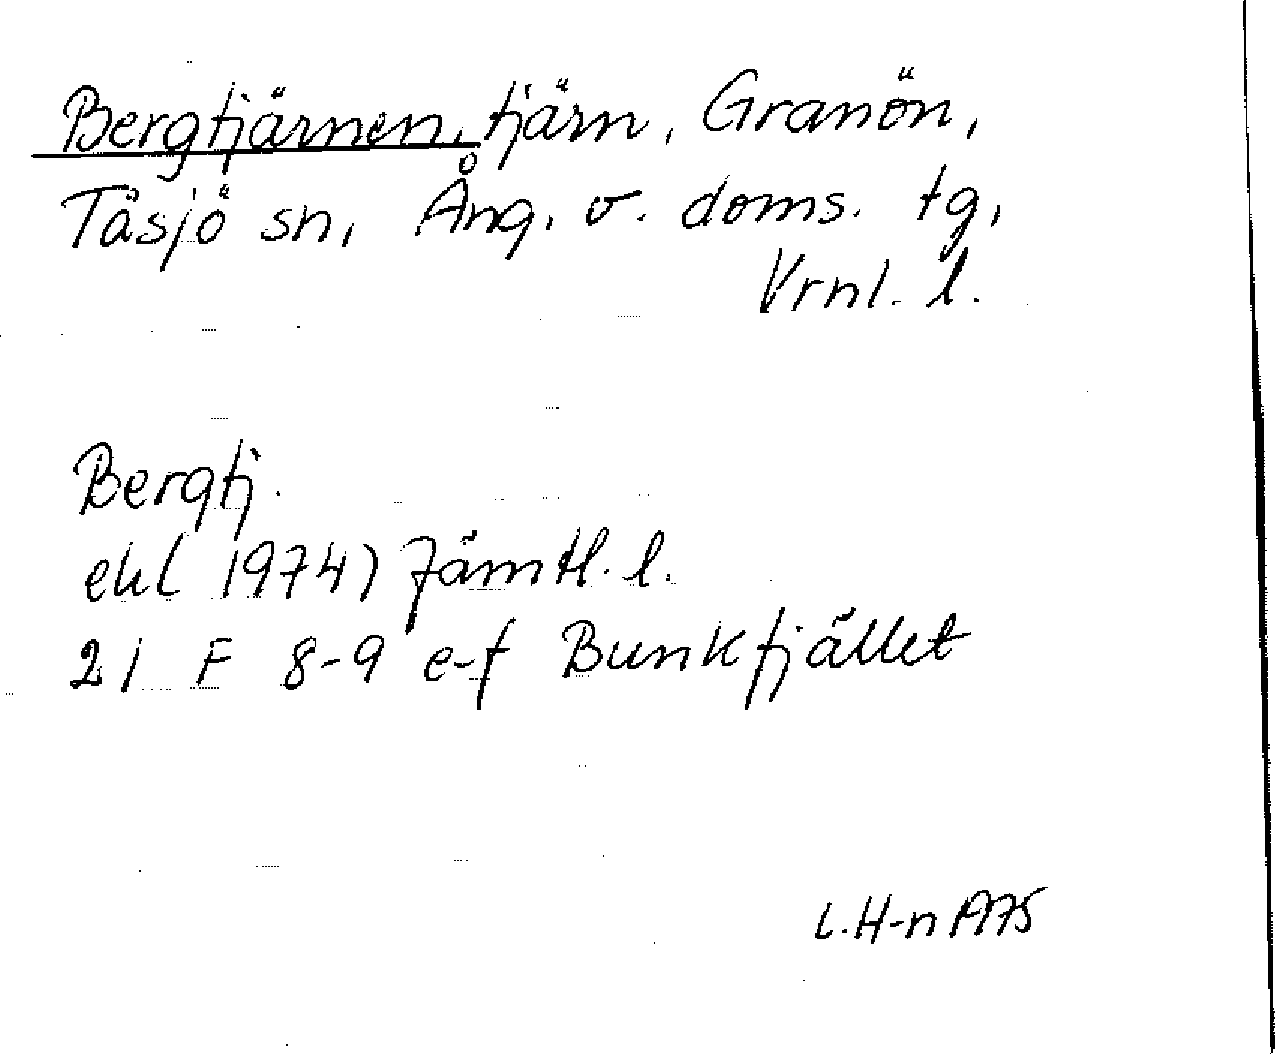 Bergtjärnen, tjärn, Granön,
Tåsjö sn, Ång. v. doms. tg,
Vrnl. l.
Bergtj.
ek (1974) Jämtl. l.
21 F 8-9 e-f Bunkfjället
L. H-n 1975